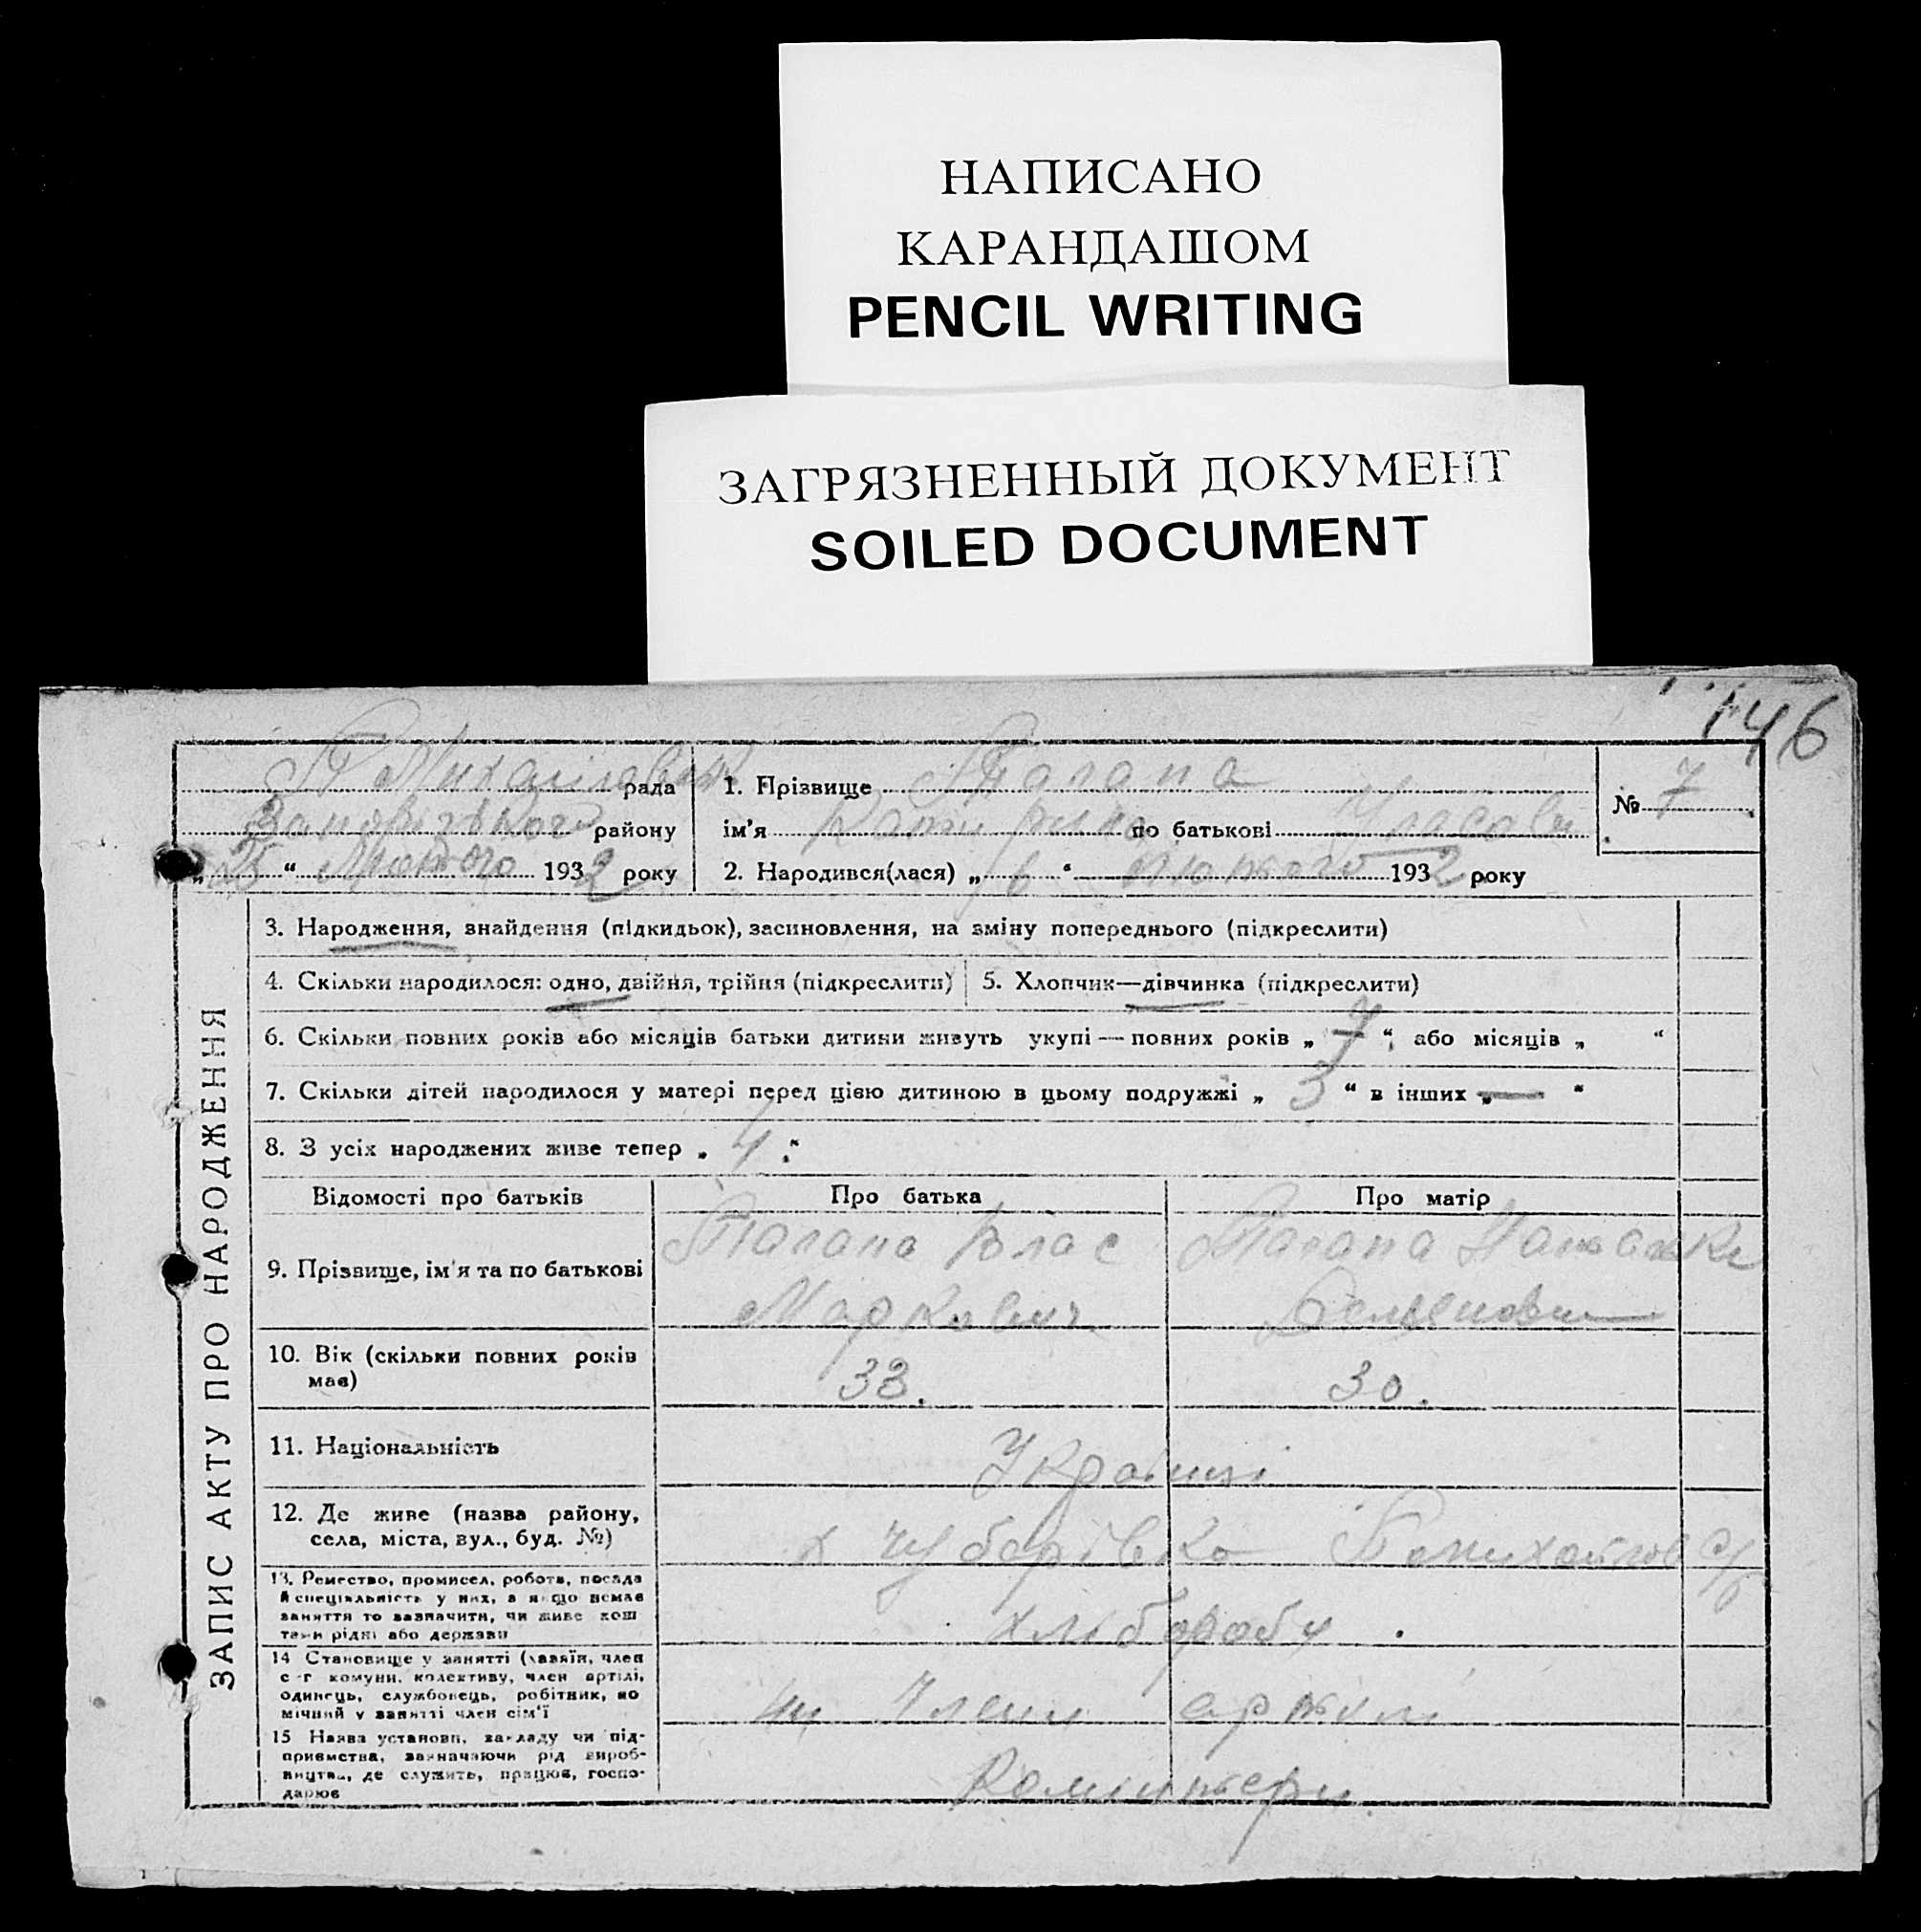 НАПИСАНО
КАРАНДАШОМ
PENCIL WRITING
ЗАГРЯЗНЕННЫЙ ДОКУМЕНТ
SOILED DOCUMENT
146
рада
Запорізького району
“ Лютого 1932 року
1. Прізвище Талапа
ім’я по батькові Уласовн
2. Народився(лася) „ 6 “ Лютого 1932 року
№ 7
ЗАПИС АКТУ ПРО НАРОДЖЕННЯ
3. Народження, знайдення (підкидьок), засиновлення, на зміну попереднього (підкреслити)
4. Скільки народилося: одно, двійня, трійня (підкреслити)
5. Хлопчик—дівчинка (підкреслити)
6. Скільки повних років або місяців батьки дитини живуть укупі — повних років „ 7 “, або місяців „ “
7. Скільки дітей народилося у матері перед цією дитиною в цьому подружжі „ 3 “ в інших „ — “
8. З усіх народжених живе тепер „ 4 “
Відомості про батьків
Про батька
Про матір
9. Прізвище, ім’я та по батькові
Талапа Влас
Маркович
Талапа
10. Вік (скільки повних років
має)
33.
30.
11. Національність
Українці
12. Де живе (назва району,
села, міста, вул., буд. №)
х Чубарівка
13. Ремество, промисел, робота, посада
й спеціяльність у них, а якщо немає
заняття то зазначити, чи живе кош
тами рідні або держави
хлібороби.
14 Становище у занятті (хазяїн, член
с-г комуни, колективу, член артілі,
одинець, службовець, робітник, по
мічний у занятті член сім’ї
Члени артілі
15 Назва установи, закладу чи під-
приємства, зазначаючи рід вироб-
ництва, де служить, працює, госпо-
дарює
Комінтерн